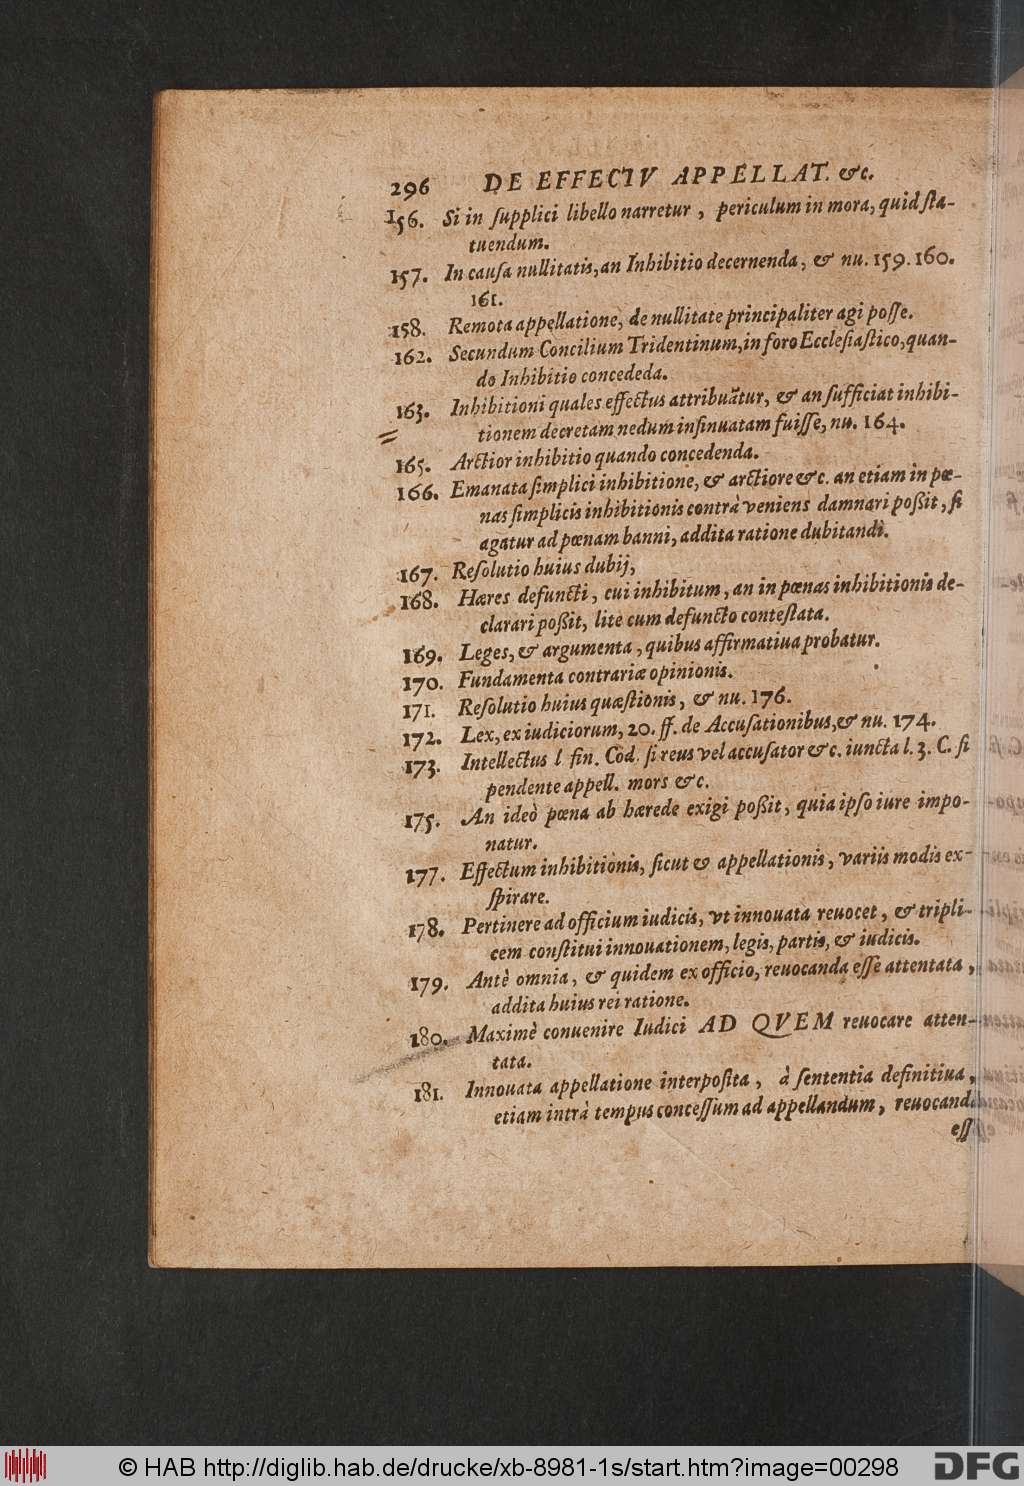 296 DE EFFECTV APPELLAT. &c.
156. Si in ſupplici libello narretur, periculum in mora, quid ſta-
tuendum.
157. In cauſa nullitatis, an Inhibitio decernenda, & nu. 159. 160.
161.
158. Remota appellatione, de nullitate principaliter agi poſſe.
162. Secundum Concilium Tridentinum, in foro Eccleſiaſtico, quan-
do Inhibitio concededa.
163. Inhibitioni quales effectus attribuātur, & an ſufficiat inhibi-
tionem decretam nedum inſinuatam fuiſſe, nu. 164.
165. Arctior inhibitio quando concedenda.
166. Emanata ſimplici inhibitione, & arctiore &c. an etiam in pœ-
nas ſimplicis inhibitionis contrà veniens damnari poßit, ſi
agatur ad pœnam banni, addita ratione dubitandi.
167. Reſolutio huius dubij,
168. Hæres defuncti, cui inhibitum, an in pœnas inhibitionis de-
clarari poßit, lite cum defuncto conteſtata.
169. Leges, & argumenta, quibus affirmatiua probatur.
170. Fundamenta contrariæ opinionis.
171. Reſolutio huius quæſtionis, & nu. 176.
172. Lex, ex iudiciorum, 20. ff. de Accuſationibus, & nu. 174.
173. Intellectus l fin. Cod. ſi reus vel accuſator &c. iuncta l. 3. C. ſi
pendente appell. mors &c.
175. An ideò pœna ab hærede exigi poßit, quia ipſo iure impo-
natur.
177. Effectum inhibitionis, ſicut & appellationis, variis modis ex-
ſpirare.
178. Pertinere ad officium iudicis, vt innouata reuocet, & tripli-
cem conſtitui innouationem, legis, partis, & iudicis.
179. Antè omnia, & quidem ex officio, reuocanda eſſe attentata,
addita huius rei ratione.
180. Maximè conuenire Iudici AD QVEM reuocare atten-
tata.
181. Innouata appellatione interpoſita, à ſententia definitiua,
etiam intrà tempus conceſſum ad appellandum, reuocanda
eſſ
© HAB http://diglib.hab.de/drucke/xb-8981-1s/start.htm?image=00298
DFG